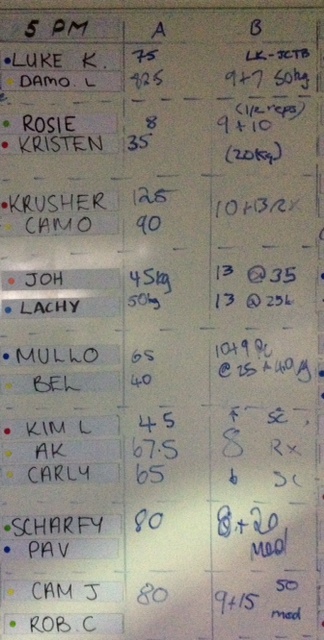 5 PM A B
LUKE K. 75 LK-JCTB
DAMO. L 82.5 9+7 50kg
(1/2 reps)
ROSIE 8 9+10
KRISTEN 35 (20kg)
KRUSHER 125 10+13 RX
CAMO 90
JOH 45kg 13 @ 35
LACHY 50kg 13 @ 25k
MULLO 65 10+9
BEL 40 @ 25 + 40
KIM L 45 SC
AK 67.5 8 RX
CARLY 65 6 SC
SCHARFY 80 8+20
PAV mod
CAM J 80 9+15 50
ROB. C mod